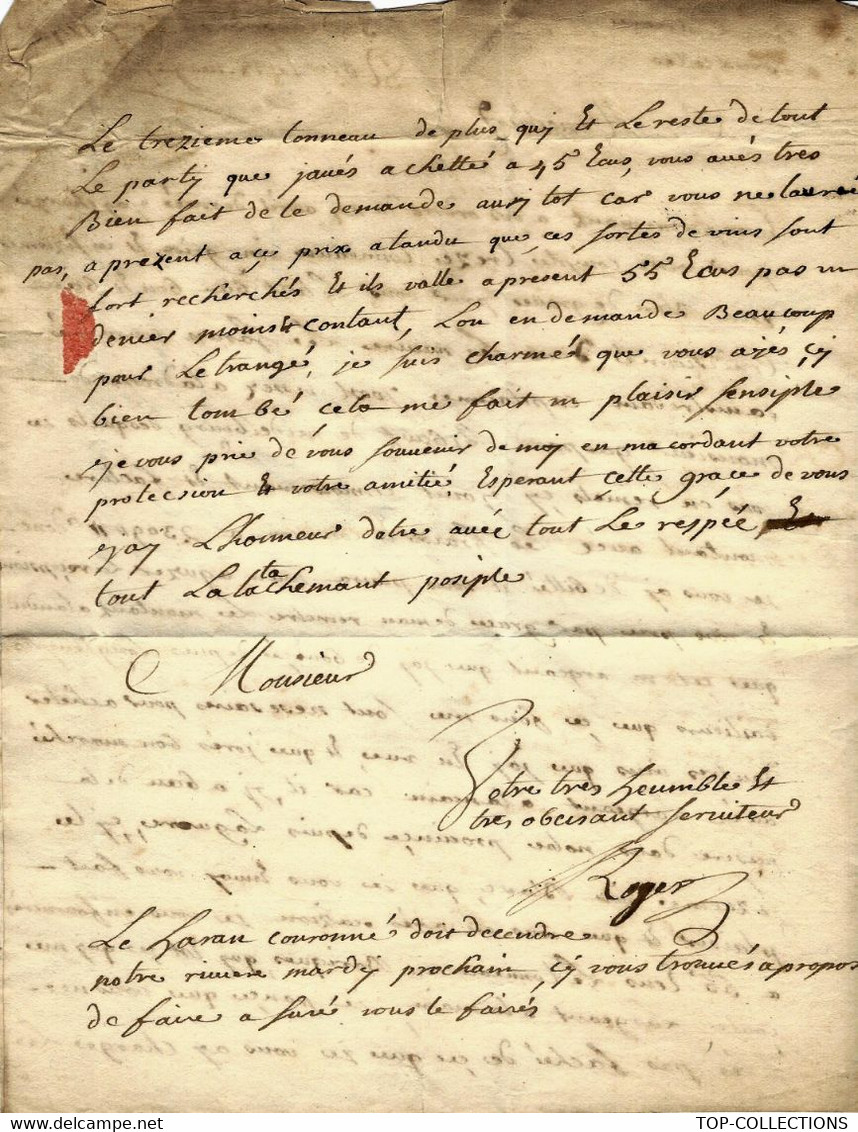 Le trezieme tonneau de plus quj Et Le reste de tout
Le partij que javés achetté a 45 Ecus, vous avés tres
Bien fait de le demande ausy tot car vous ne lauré
pas, a prezent a çe prix atandu que ces sortes de vins sont
fort recherchés Et ils valle apresent 55 Ecus pas un
denier moins Et contant, Lon en demande Beaucoup
pour Letrangé, je suis charmés que vous ajés çy
bien tombé cela me fait un plaisir sensiple
eje vous prie de vous souvenir de moj en macordant votre
protecsion Et votre amitié, Esperant çette grace de vous
ejaj Lhonneur detre avéc tout Le respéc,
tout Latachemant posiple
Monsieur
Votre tres heumble Et
tres obeisant serviteur
Roger
Le haran couronné doit decendre
notre riviere mardij prochain, çy vous trouvés apropos
de faire a suré vous le fairés,
TOP-COLLECTIONS